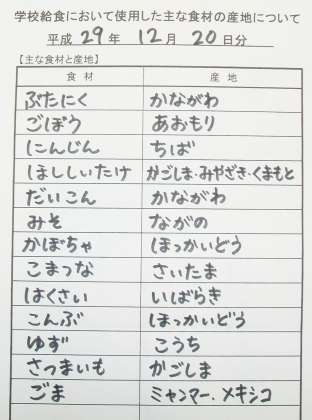 学校給食において使用した主な食材の産地について
平成 29 年 12 月 20 日分
【主な食材と産地】
食 材 産 地
ぶたにく かながわ
ごぼう あおもり
にんじん ちば
ほししいたけ かごしま・みやざき・くまもと
だいこん かながわ
みそ ながの
かぼちゃ ほっかいどう
こまつな さいたま
はくさい いばらき
こんぶ ほっかいどう
ゆず こうち
さつまいも かごしま
ごま ミャンマー、メキシコ